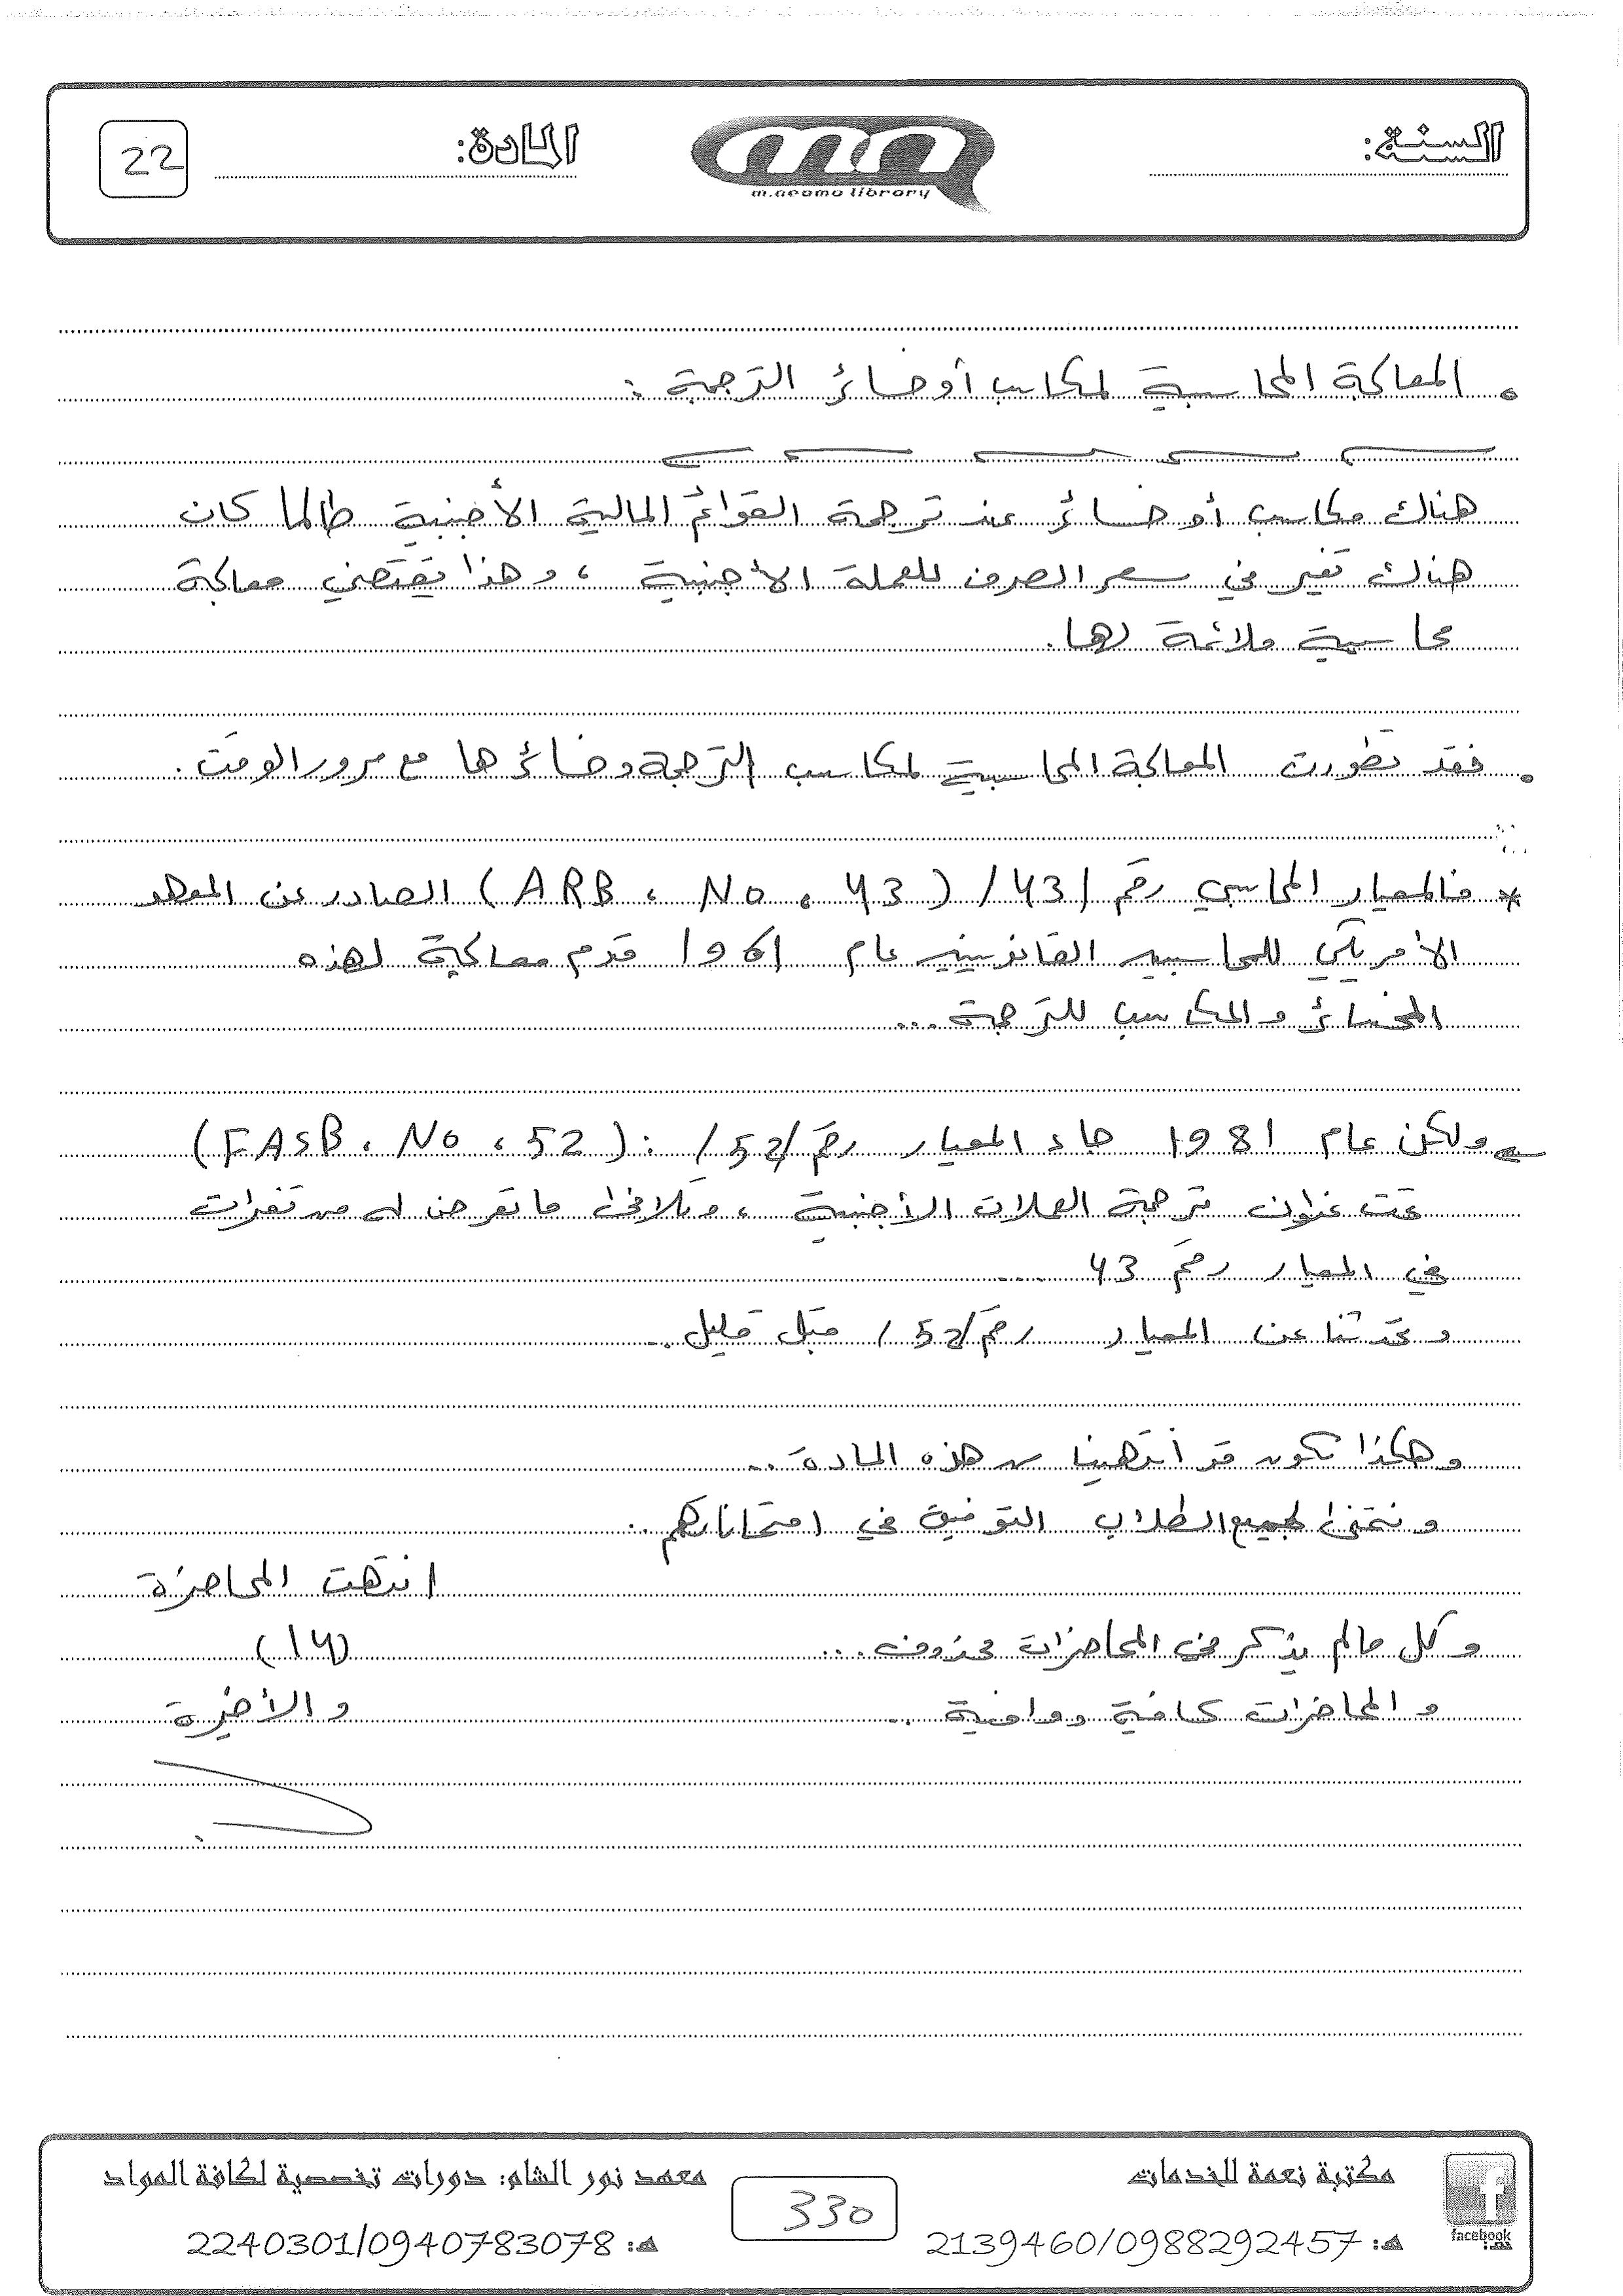 السنة:
m.neama library
المادة:
22
المعالجة المحاسبية لمكاسب أو خسائر الترجمة :
هناك مكاسب أو خسائر عند ترجمة القوائم المالية الأجنبية طالما كان
هناك تغير في سعر الصرف للعملة الأجنبية ، وهذا يقتضي معالجة
محاسبية ملائمة لها.
فقد تطورت المعالجة المحاسبية لمكاسب الترجمة وخسائرها مع مرور الوقت .
* فالمعيار المحاسبي رقم /43/ (ARB . No . 43) الصادر عن المعهد
الأمريكي للمحاسبين القانونيين عام قدم معالجة لهذه
الخسائر والمكاسب للترجمة ...
ولكن عام 1981 جاء المعيار رقم /52/ : (FASB . No . 52)
تحت عنوان ترجمة العملات الأجنبية ، وتلافى ما تعرض له من ثغرات
في المعيار رقم 43 ....
وتحدثنا عن المعيار رقم /52/ قبل قليل ..
وهكذا نكون قد انتهينا من هذه المادة ..
ونتمنى لجميع الطلاب التوفيق في امتحاناتكم ..
انتهت المحاضرة
وكل مالم يذكر في المحاضرات محذوف ....
(14)
والمحاضرات كافية ووافية ..
والأخيرة
مكتبة نعمة للخدمات
هـ: 2139460/0988292457
facebook
330
معهد نور الشام: دورات تخصصية لكافة المواد
هـ: 2240301/0940783078